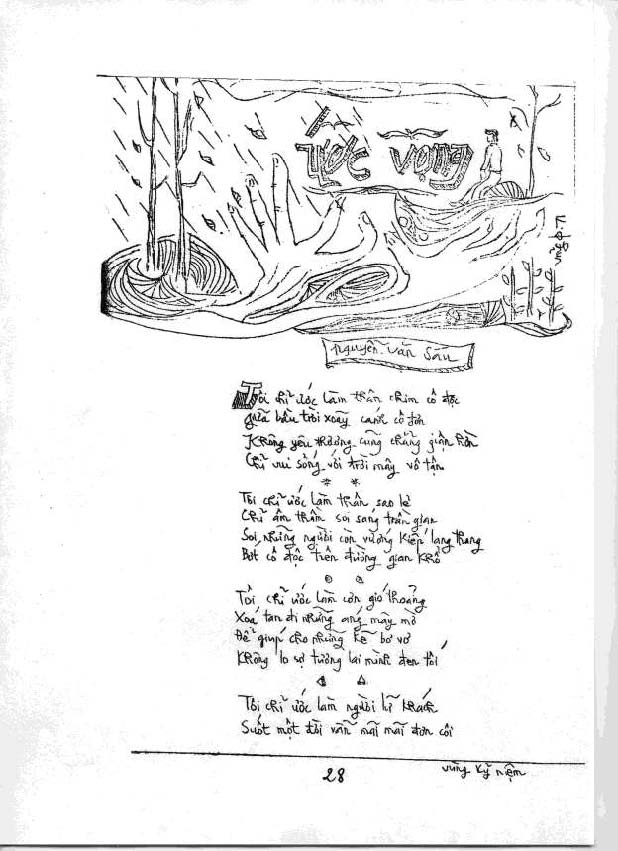 Ước vọng
Nguyễn văn Sáu
Tôi chỉ ước làm thân chim cô độc
giữa bầu trời xoãy cánh cô đơn
Không yêu thương cũng chẳng giận hờn
Chỉ vui sống với trời mây vô tận
Tôi chỉ ước làm thân sao lẻ
Chỉ âm thầm soi sáng trần gian
Soi những người còn vướng kiếp lang thang
Bớt cô độc trên đường gian khổ
Tôi chỉ ước làm cơn gió thoảng
Xoá tan đi những áng mây mờ
Để giúp cho những kẻ bơ vơ
Không lo sợ tương lai mình đen tối
Tôi chỉ ước làm người lữ khách
Suốt một đời vẫn mãi mãi đơn côi
28
vùng kỷ niệm